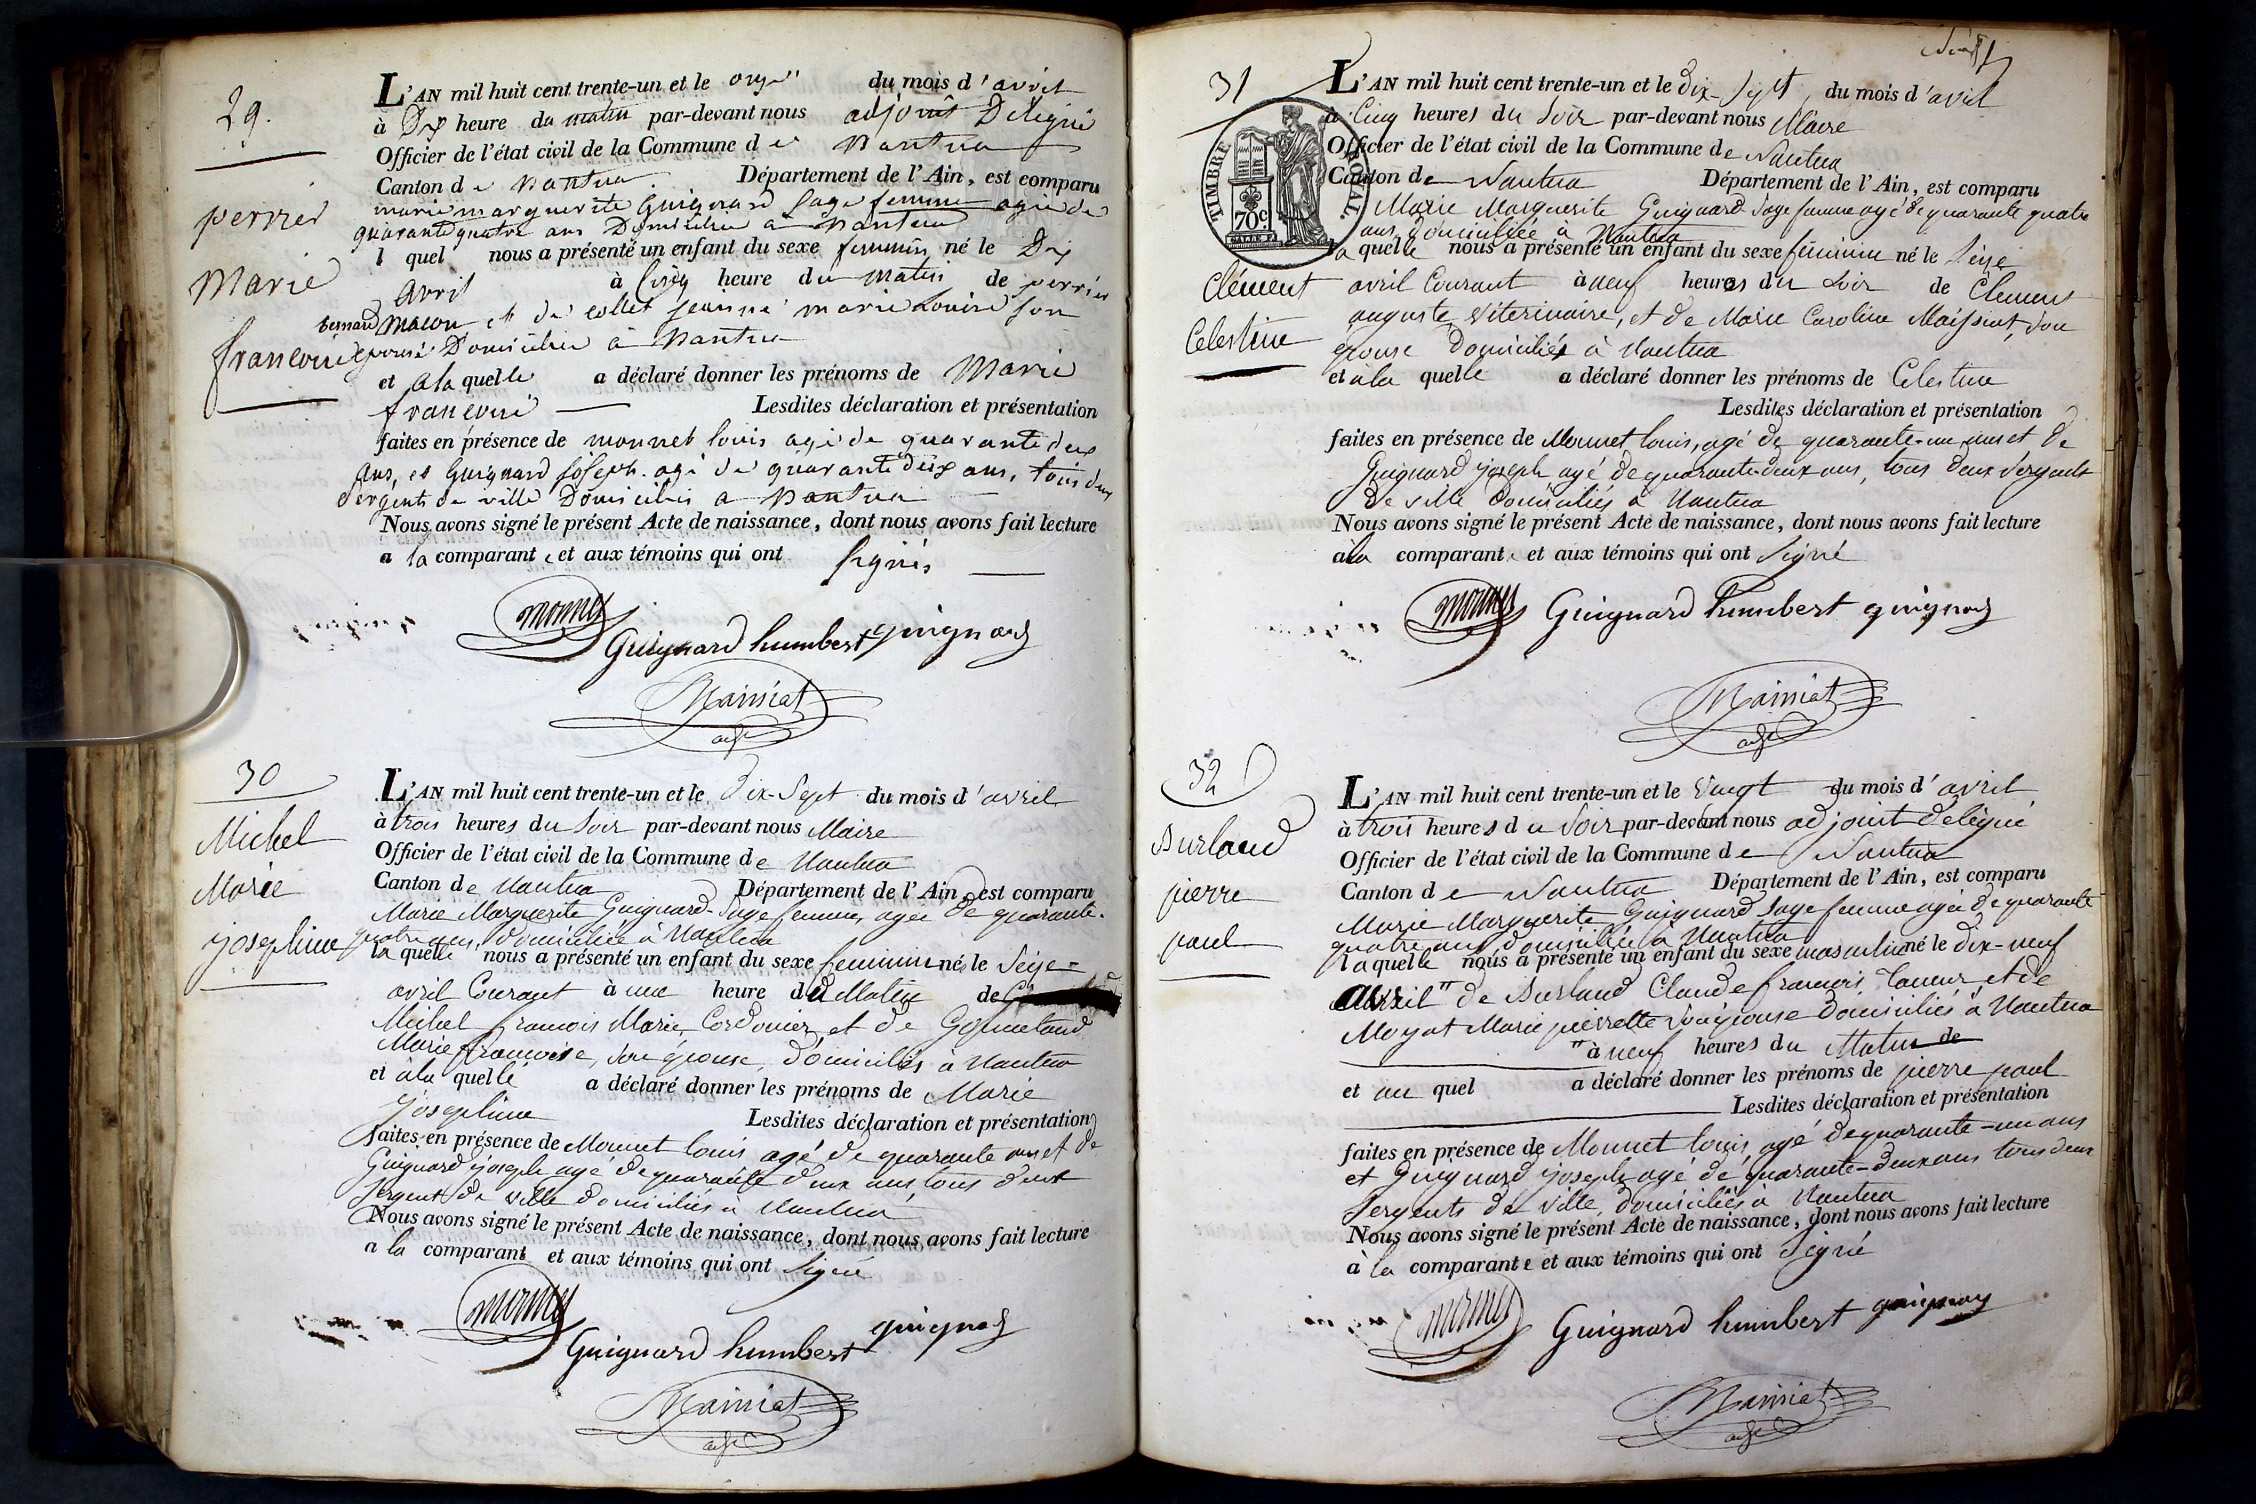 29.
perrier
Marie
francoise
L'AN mil huit cent trente-un et le onze du mois d'avril
à Dix heure du matin par-devant nous adjoint Délégué
Officier de l'état civil de la Commune de Nantua
Canton de Nantua Département de l'Ain, est comparu
marie marguerite Guignard Sage femme agée de
quarante quatre ans Domiciliée a Nantua
l quel nous a présenté un enfant du sexe feminin né le Dix
avril à Cinq heure du matin de perrier
bernard macon et de collet jeanne marie Louise son
epouse Domiciliés à Nantua
et a la quelle a déclaré donner les prénoms de Marie
francoise Lesdites déclaration et présentation
faites en présence de monnet louis agé de quarante deux
ans, et Guignard joseph agé de quarante deux ans, tous deux
sergents de ville Domiciliés a Nantua
Nous avons signé le présent Acte de naissance, dont nous avons fait lecture
a la comparante et aux témoins qui ont signés
monnet
Guignard humbert guignard
Mainiat
adjt
30
Michel
Marie
josephine
L'AN mil huit cent trente-un et le Dix-Sept du mois d'avril
à trois heures du Soir par-devant nous Maire
Officier de l'état civil de la Commune de Nantua
Canton de Nantua Département de l'Ain, est comparu
Marie Marguerite Guignard Sage femme, agée de quarante-
quatre ans, domiciliée à Nantua
la quelle nous a présenté un enfant du sexe feminin né le Seize
avril Courant à une heure du Matin de
Michel francois Marie, Cordonier et de
Marie françoise, son épouse, domiciliés à Nantua
et à la quelle a déclaré donner les prénoms de Marie
Josephine Lesdites déclaration et présentation
faites en présence de Monnet louis agé de quarante ans et de
Guignard joseph agé de quarante deux ans tous deux
Sergent de ville domiciliés à Nantua
Nous avons signé le présent Acte de naissance, dont nous avons fait lecture
a la comparant et aux témoins qui ont Signé
monnet
Guignard humbert guignard
Mainiat
adjt
31
TIMBRE ROYAL.
70c.
Clément
Celestine
L'AN mil huit cent trente-un et le dix-Sept du mois d'avril
à Cinq heures du Soir par-devant nous Maire
Officier de l'état civil de la Commune de Nantua
Canton de Nantua Département de l'Ain, est comparu
Marie Marguerite Guignard Sage femme agé de quarante quatre
ans, domiciliée à Nantua
la quelle nous a présenté un enfant du sexe féminin né le Seize
avril Courant à neuf heures du Soir de Clément
auguste Véterinaire, et de Marie Caroline Maissiat, son
épouse domiciliés à Nantua
et à la quelle a déclaré donner les prénoms de Celestine
Lesdites déclaration et présentation
faites en présence de Monnet louis, agé de quarante-un ans et de
Guignard joseph agé de quarante-deux ans, tous deux Sergents
de ville domiciliés à Nantua
Nous avons signé le présent Acte de naissance, dont nous avons fait lecture
à la comparante et aux témoins qui ont Signé
monnet Guignard humbert guignard
Mainiat
adjt
32
Burlaud
pierre
paul
L'AN mil huit cent trente-un et le Vingt du mois d'avril
à trois heures du Soir par-devant nous adjoint délégué
Officier de l'état civil de la Commune de Nantua
Canton de Nantua Département de l'Ain, est comparu
Marie Marguerite Guignard Sage femme agée de quarante
quatre ans domiciliée à Nantua
laquelle nous a présenté un enfant du sexe masculin né le dix-neuf
avril " de Burlaud Claude françois, Tanneur, et de
Moyat Marie pierrette son épouse domiciliés à Nantua
" à neuf heures du Matin de
et au quel a déclaré donner les prénoms de pierre paul
Lesdites déclaration et présentation
faites en présence de Monnet louis, agé de quarante-un ans
et Guignard joseph agé de quarante-deux ans tous deux
Sergents de ville, domiciliés à Nantua
Nous avons signé le présent Acte de naissance, dont nous avons fait lecture
à la comparante et aux témoins qui ont Signé
monnet Guignard humbert guignard
Mainiat
adjt